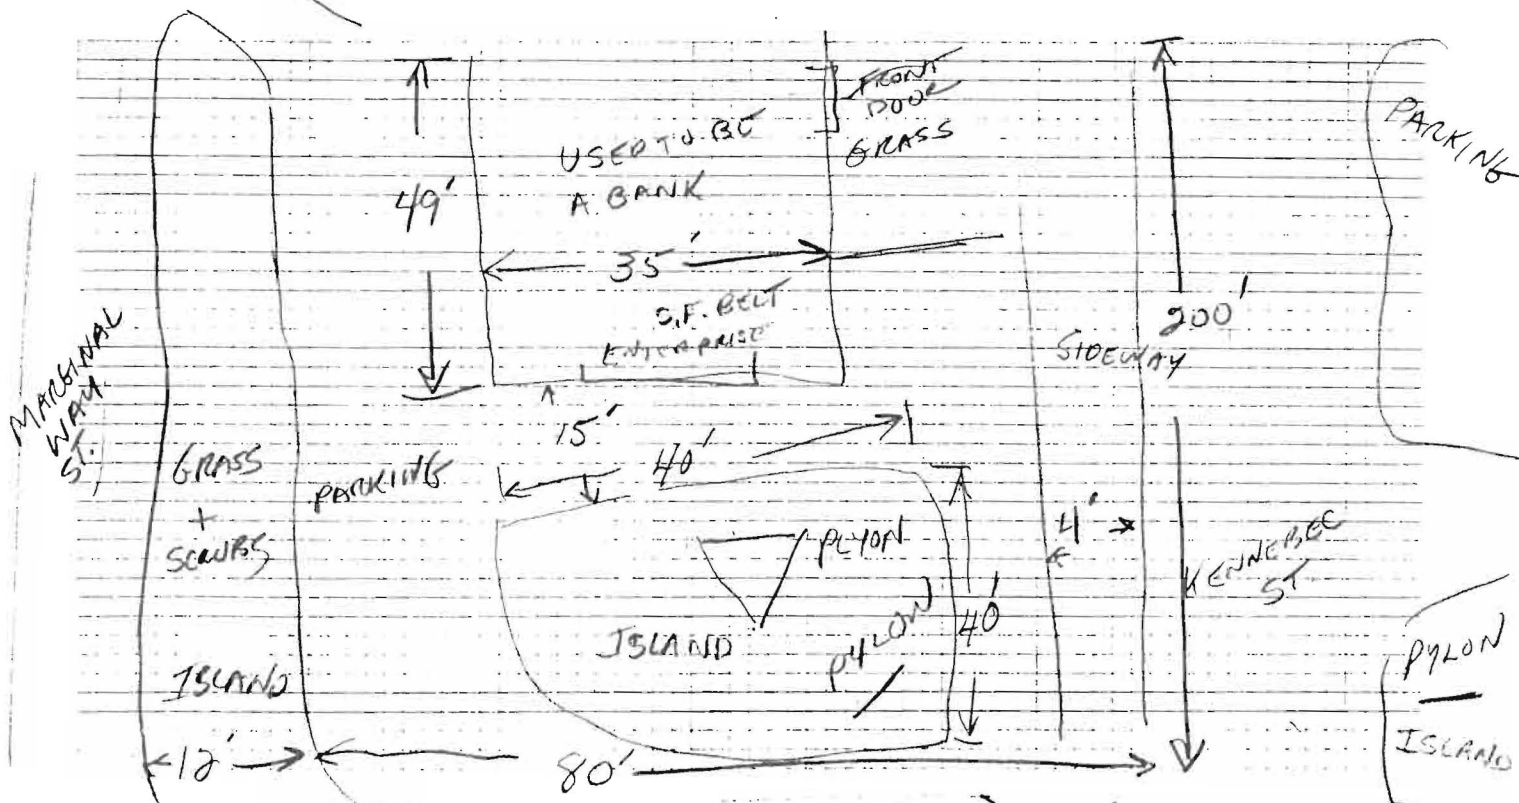 FRONT
DOOR
GRASS
PARKING
USED TO BE
A BANK
49'
35'
S.F. BELT
ENTERPRISE
200'
SIDEWAY
MARGINAL
WAY
ST.
15'
40'
GRASS
+
SCRUBS
PARKING
PLYON
4'
KENNEBEC
ST.
ISLAND
PYLON
40'
PYLON
ISLAND
ISLAND
12'
80'